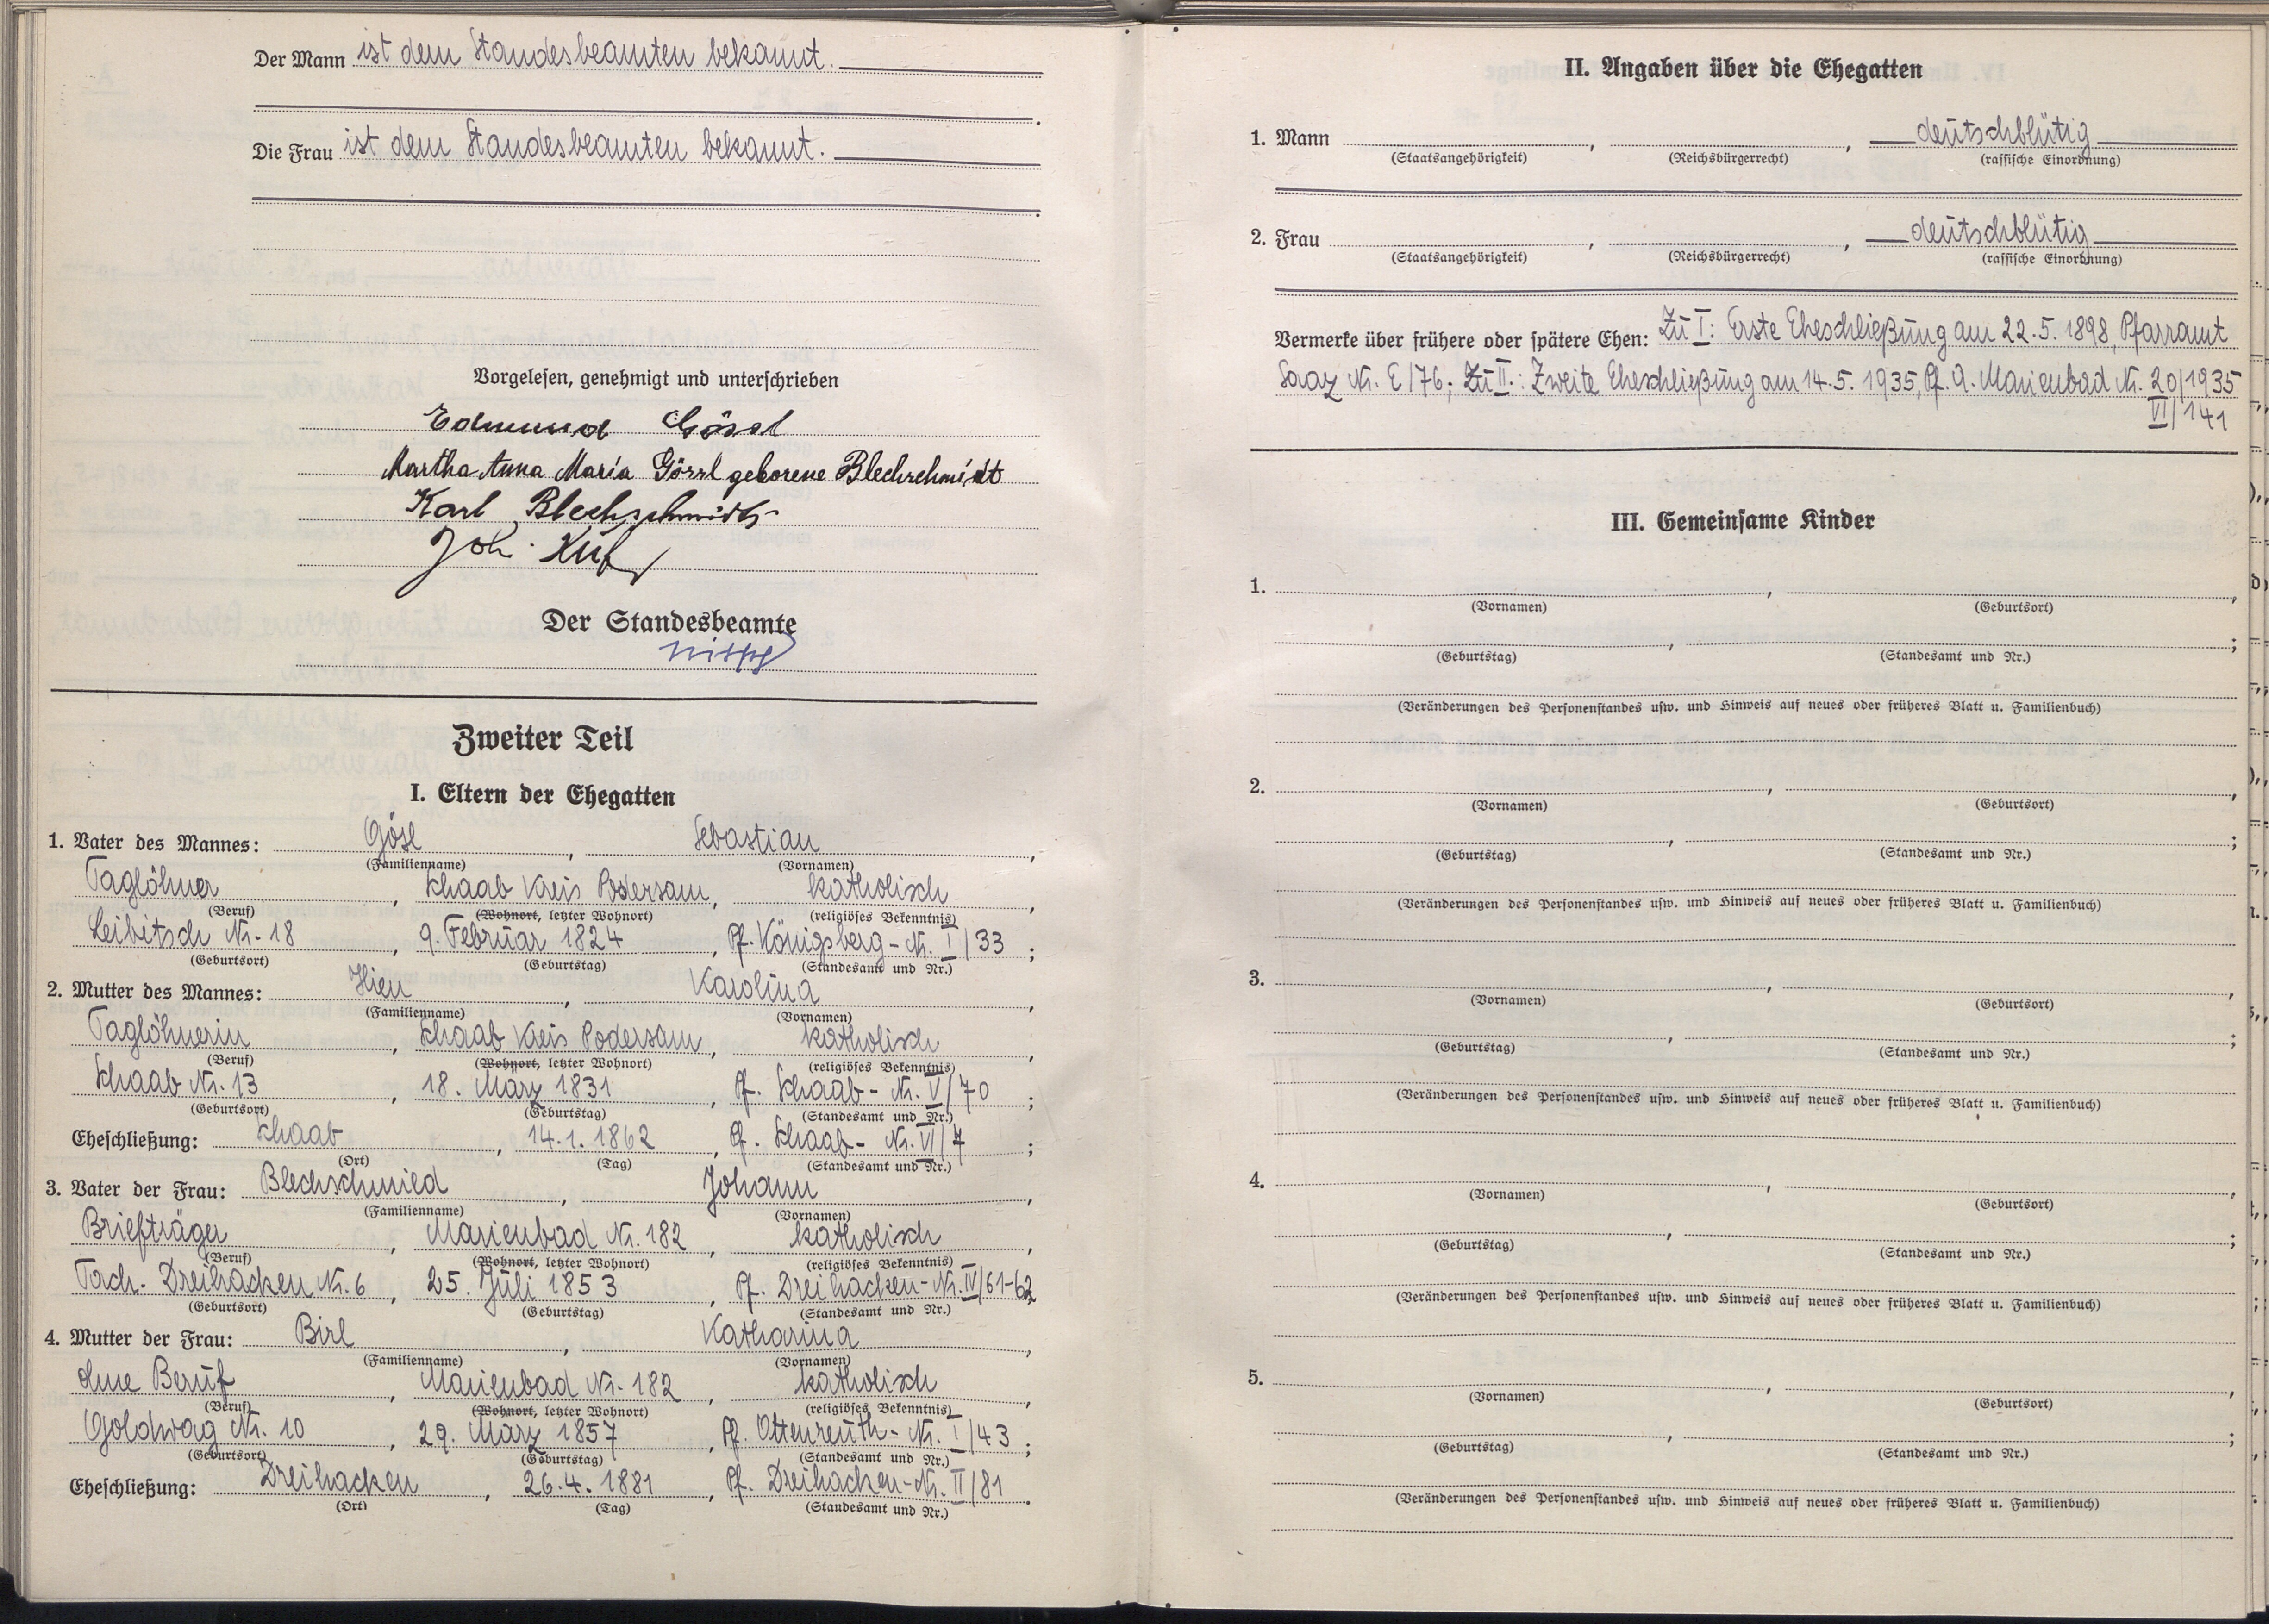 Der Mann ist dem Standesbeamten bekannt.
Die Frau ist dem Standesbeamten bekannt.
Vorgelesen, genehmigt und unterschrieben
Edmund Gössl
Martha Anna Maria Gössl geborene Blechschmidt
Karl Blechschmidt
Joh.
Der Standesbeamte
Zweiter Teil
I. Eltern der Ehegatten
1. Vater des Mannes: Gösl, Sebastian,
(Familienname) (Vornamen)
Taglöhner, Schaab Kreis Podersam, katholisch,
(Beruf) (Wohnort, letzter Wohnort) (religiöses Bekenntnis)
Leibitsch Nr. 18, 9. Februar 1824, Pf. Königsberg - Nr. I/33;
(Geburtsort) (Geburtstag) (Standesamt und Nr.)
2. Mutter des Mannes: Hien, Karolina,
(Familienname) (Vornamen)
Taglöhnerin, Schaab Kreis Podersam, katholisch,
(Beruf) (Wohnort, letzter Wohnort) (religiöses Bekenntnis)
Schaab Nr. 13, 18. März 1831, Pf. Schaab - Nr. V/70;
(Geburtsort) (Geburtstag) (Standesamt und Nr.)
Eheschließung: Schaab, 14.1.1862, Pf. Schaab - Nr. VI/7;
(Ort) (Tag) (Standesamt und Nr.)
3. Vater der Frau: Blechschmied, Johann,
(Familienname) (Vornamen)
Briefträger, Marienbad Nr. 182, katholisch,
(Beruf) (Wohnort, letzter Wohnort) (religiöses Bekenntnis)
Tach. Dreihacken Nr. 6, 25. Juli 1853, Pf. Dreihacken - Nr. IV/61-62
(Geburtsort) (Geburtstag) (Standesamt und Nr.)
4. Mutter der Frau: Birl, Katharina,
(Familienname) (Vornamen)
ohne Beruf, Marienbad Nr. 182, katholisch,
(Beruf) (Wohnort, letzter Wohnort) (religiöses Bekenntnis)
Goldwag Nr. 10, 29. März 1857, Pf. Ottenreuth - Nr. I/43;
(Geburtsort) (Geburtstag) (Standesamt und Nr.)
Eheschließung: Dreihacken, 26.4.1881, Pf. Dreihacken - Nr. II/81.
(Ort) (Tag) (Standesamt und Nr.)
II. Angaben über die Ehegatten
1. Mann , , deutschblütig
(Staatsangehörigkeit) (Reichsbürgerrecht) (rassische Einordnung)
2. Frau , , deutschblütig
(Staatsangehörigkeit) (Reichsbürgerrecht) (rassische Einordnung)
Vermerke über frühere oder spätere Ehen: Zu I: Erste Eheschließung am 22.5.1898, Pfarramt
Saaz Nr. E/76; Zu II.: Zweite Eheschließung am 14.5.1935, Pf. A. Marienbad Nr. 20/1935
VI/141
III. Gemeinsame Kinder
1. , ,
(Vornamen) (Geburtsort)
, ;
(Geburtstag) (Standesamt und Nr.)
(Veränderungen des Personenstandes usw. und Hinweis auf neues oder früheres Blatt u. Familienbuch)
2. , ,
(Vornamen) (Geburtsort)
, ;
(Geburtstag) (Standesamt und Nr.)
(Veränderungen des Personenstandes usw. und Hinweis auf neues oder früheres Blatt u. Familienbuch)
3. , ,
(Vornamen) (Geburtsort)
, ;
(Geburtstag) (Standesamt und Nr.)
(Veränderungen des Personenstandes usw. und Hinweis auf neues oder früheres Blatt u. Familienbuch)
4. , ,
(Vornamen) (Geburtsort)
, ;
(Geburtstag) (Standesamt und Nr.)
(Veränderungen des Personenstandes usw. und Hinweis auf neues oder früheres Blatt u. Familienbuch)
5. , ,
(Vornamen) (Geburtsort)
, ;
(Geburtstag) (Standesamt und Nr.)
(Veränderungen des Personenstandes usw. und Hinweis auf neues oder früheres Blatt u. Familienbuch)